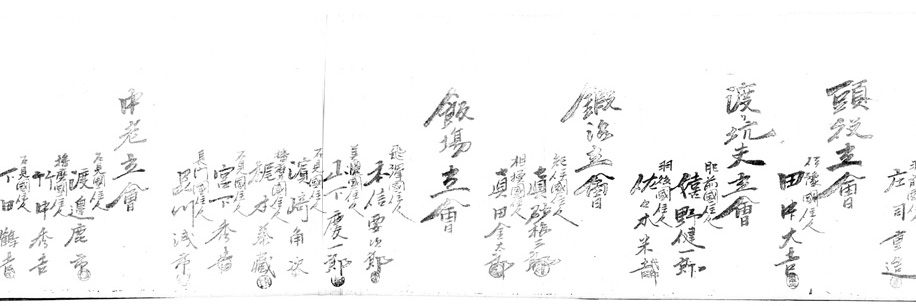 庄司重造
頭役立會
伊豫國住人
田中大吉
渡り坑夫立會
肥前國住人
嬉野健一郎
羽後國住人
佐々木米蔵
鍛冶立會
紀伊國住人
真砂楠三郎
相模國住人
真田金太郎
飯場立會
飛騨國住人
末信要次郎
美濃國住人
山下慶一郎
石見國住人
濱崎角次
播磨國住人
石見國住人
宮下秀吉
長門國住人
中老立會
石見國住人
渡邊鹿市
播磨國住人
竹中秀吉
石見國住人
下田鶴吉